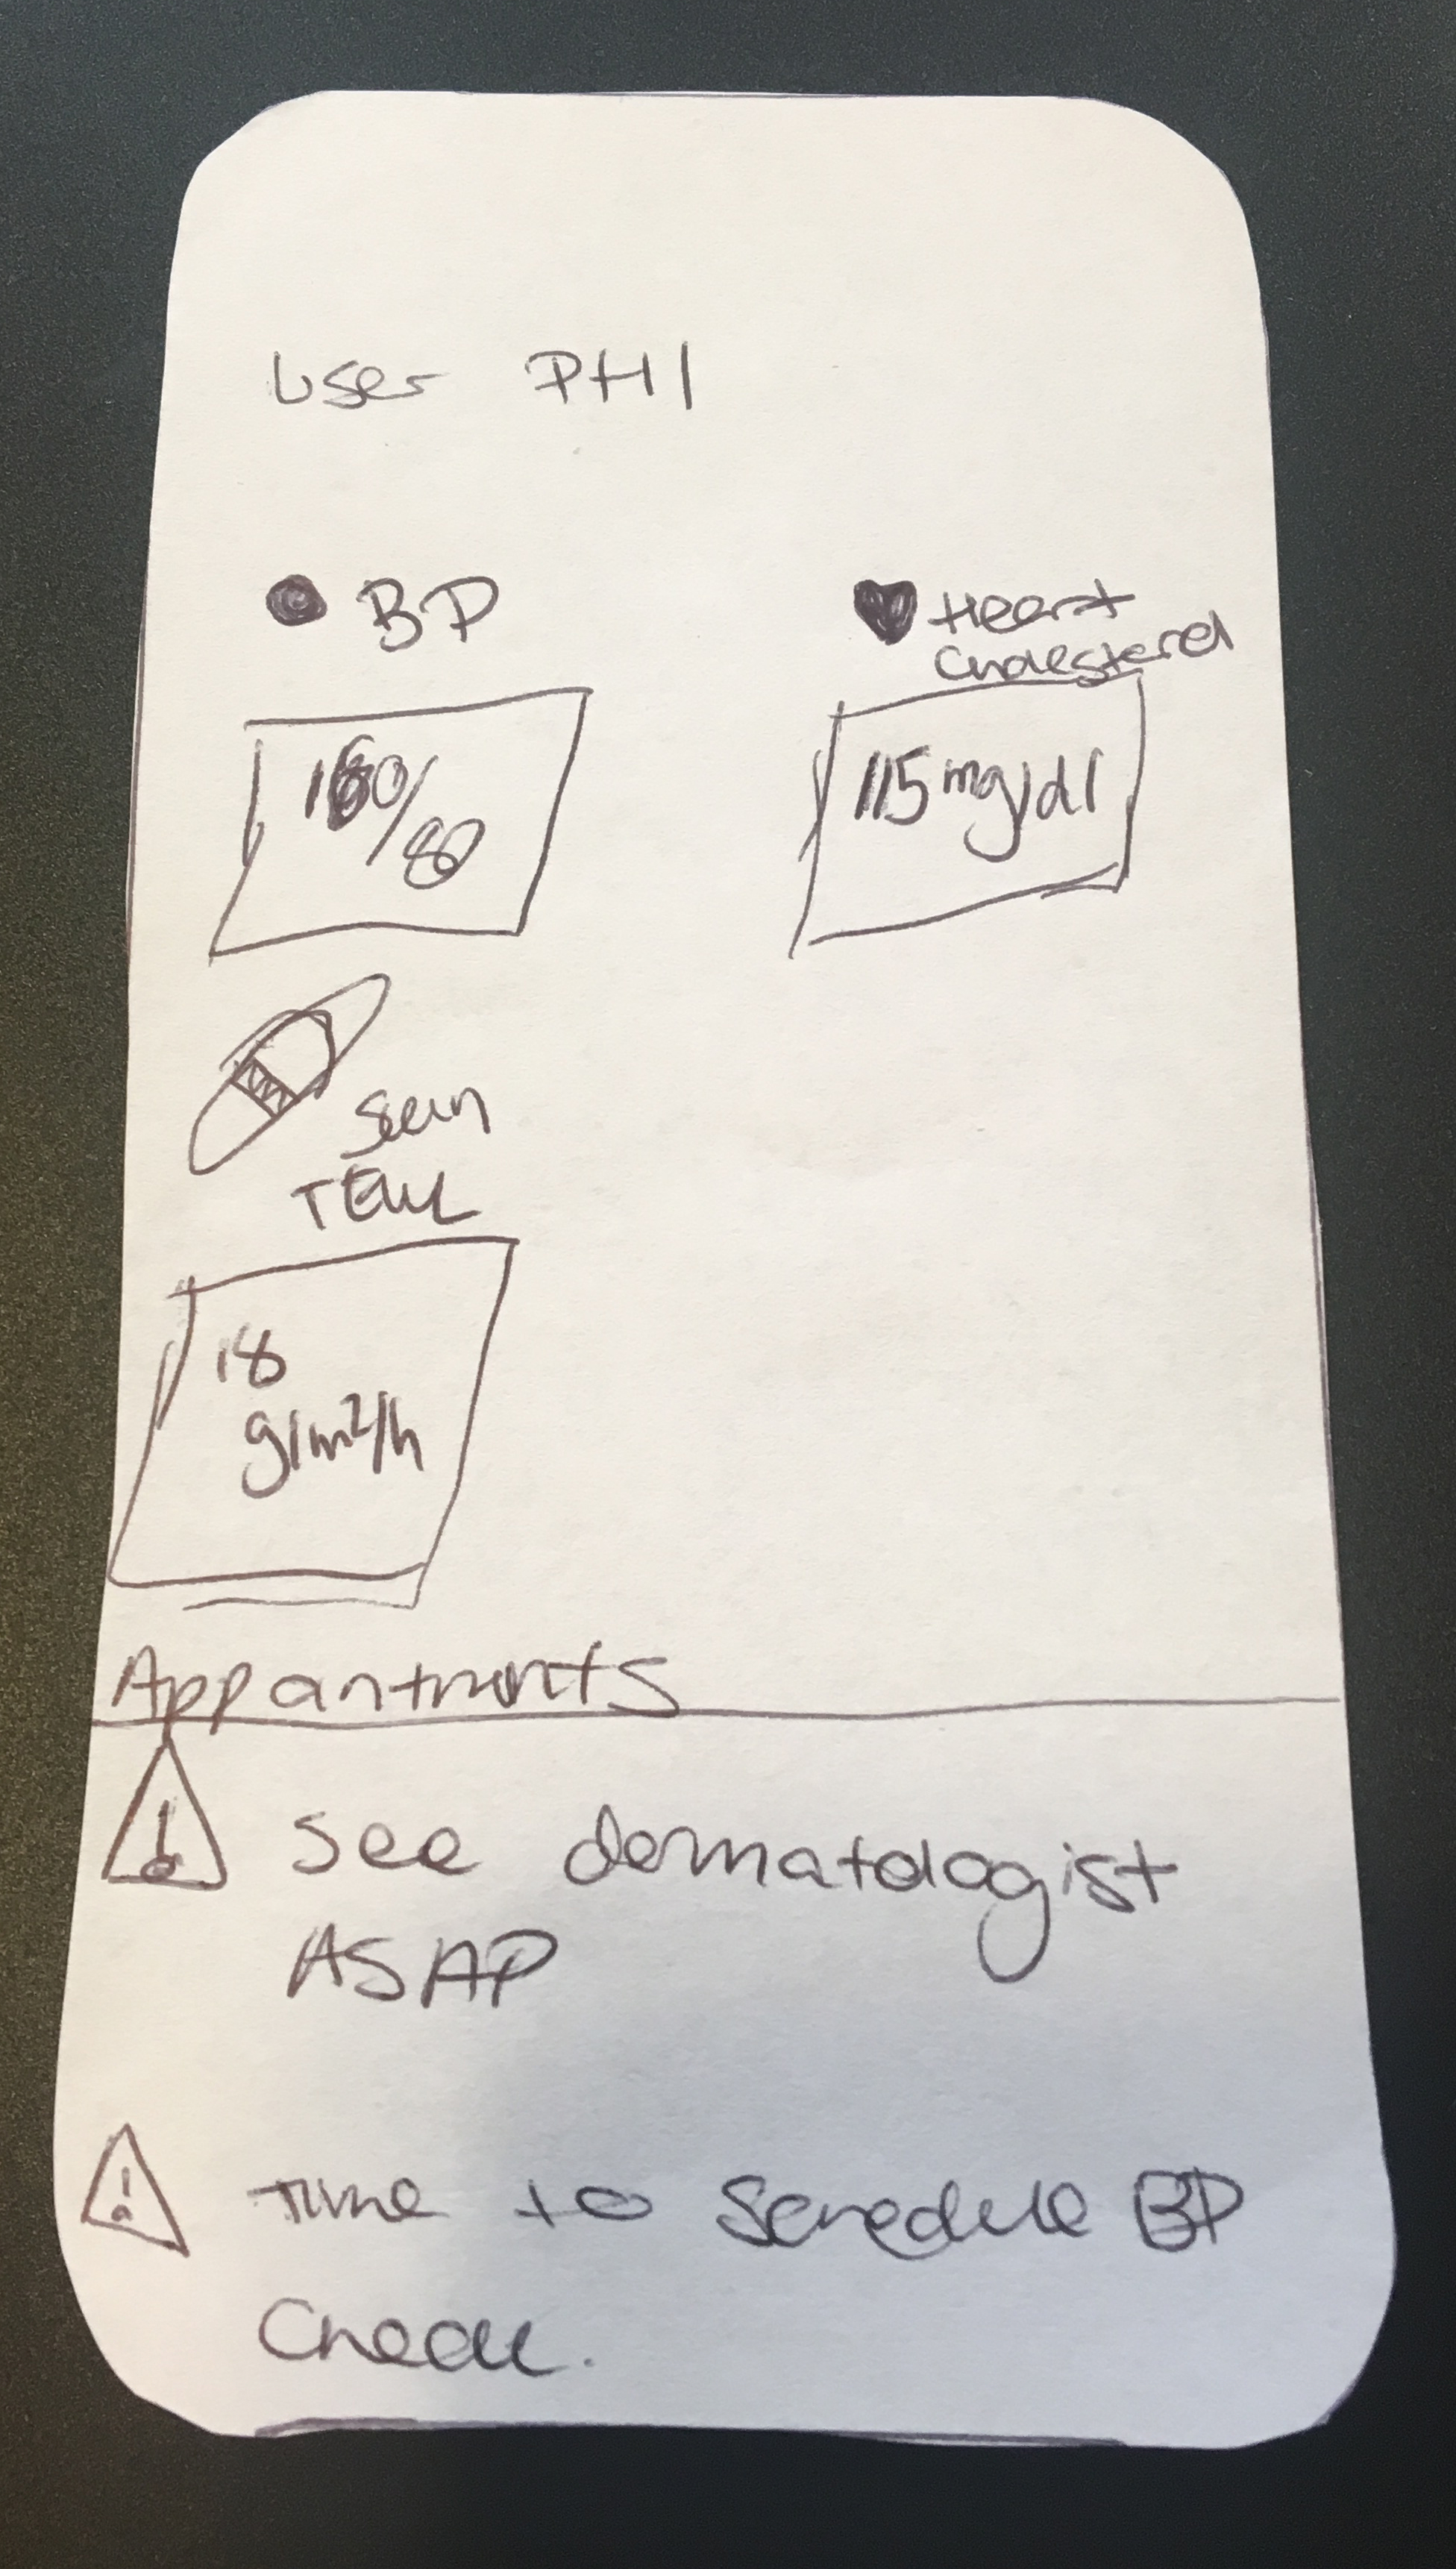 User PHI
BP
Heart
Cholesterol
/80
115 mg/dl
Skin
TEWL
18
g/m²/h
Appointments
See dermatologist
ASAP
Time to Schedule BP
Check.